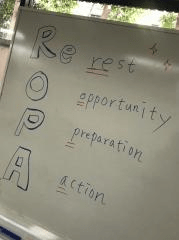 Re rest
O opportunity
P preparation
A action